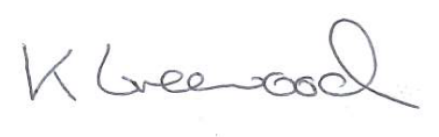 K Greenwood